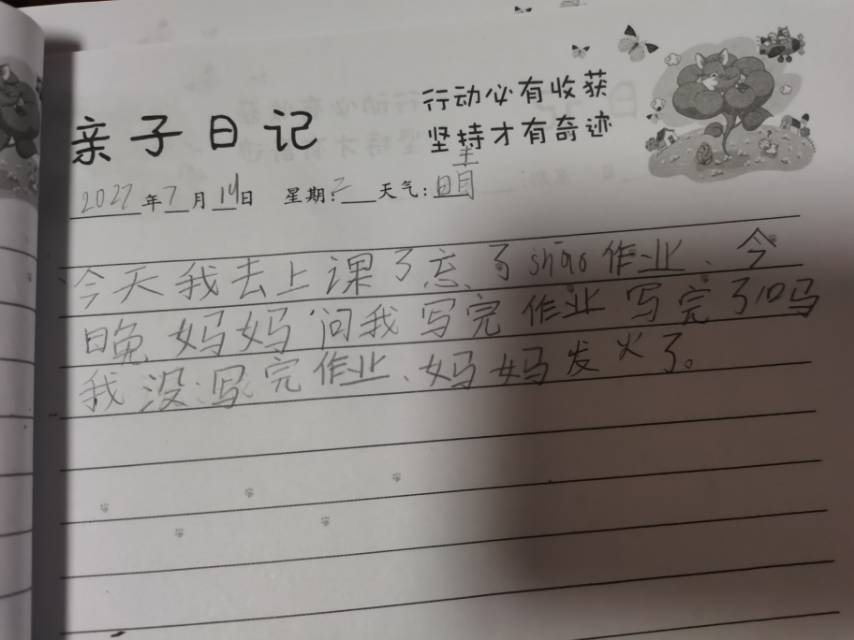 亲子日记
行动必有收获
坚持才有奇迹
2022年7月14日 星期:二 天气:晴
今天我去上课了忘了shao作业、今
晚妈妈问我写完作业写完了吗
我没写完作业、妈妈发火了。